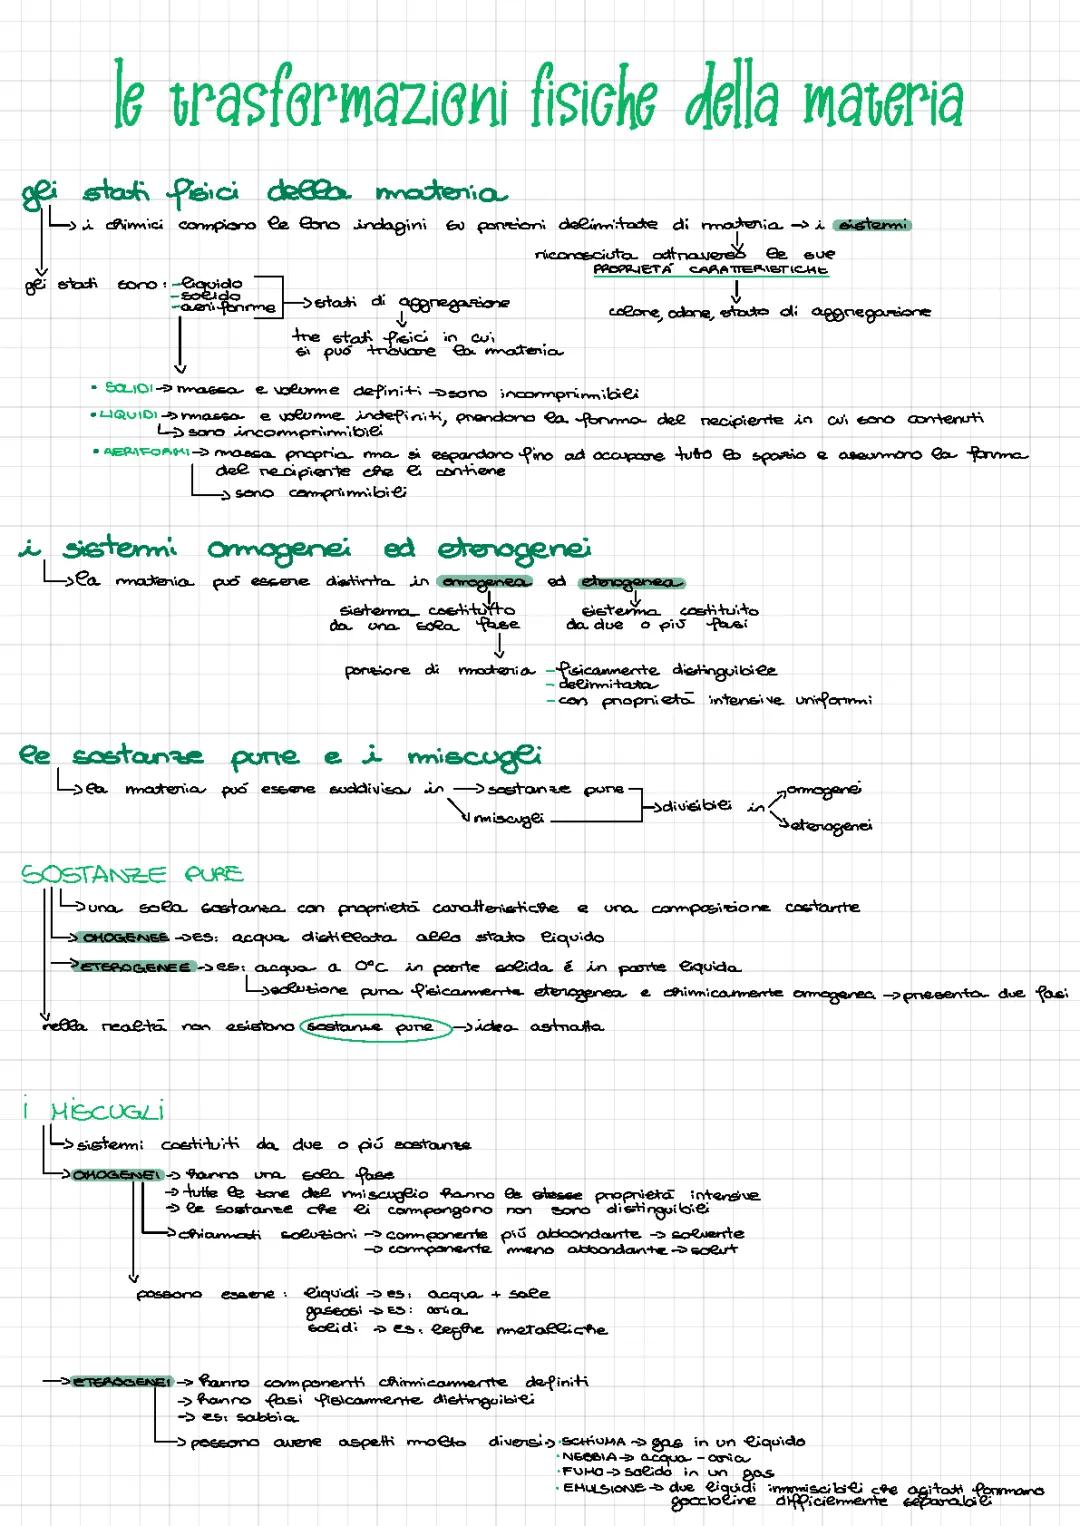 le trasformazioni fisiche della materia
gli stati fisici della materia
i chimici compiono le loro indagini su porzioni delimitate di materia → i sistemi
riconosciuta attraverso le sue
PROPRIETÀ CARATTERISTICHE
gli stati sono: - liquido
- solido
- aeriforme
→ stati di aggregazione
colore, odore, stato di aggregazione
tre stati fisici in cui
si può trovare la materia
• SOLIDI → massa e volume definiti → sono incomprimibili
• LIQUIDI → massa e volume indefiniti, prendono la forma del recipiente in cui sono contenuti
→ sono incomprimibili
• AERIFORMI → massa propria ma si espandono fino ad occupare tutto lo spazio e assumono la forma
del recipiente che li contiene
→ sono comprimibili
i sistemi omogenei ed eterogenei
→ la materia può essere distinta in omogenea ed eterogenea
sistema costituito sistema costituito
da una sola fase da due o più fasi
porzione di materia - fisicamente distinguibile
- delimitata
- con proprietà intensive uniformi
le sostanze pure e i miscugli
→ la materia può essere suddivisa in → sostanze pure
→ divisibili in
omogenei
miscugli
eterogenei
SOSTANZE PURE
→ una sola sostanza con proprietà caratteristiche e una composizione costante
→ OMOGENEE → ES: acqua distillata allo stato liquido
→ ETEROGENEE → es: acqua a 0°C in parte solida é in parte liquida
→ soluzione pura fisicamente eterogenea e chimicamente omogenea → presenta due fasi
nella realtà non esistono sostanze pure → idea astratta
i MISCUGLI
→ sistemi costituiti da due o più sostanze
→ OMOGENEI → hanno una sola fase
→ tutte le zone del miscuglio hanno le stesse proprietà intensive
→ le sostanze che li compongono non sono distinguibili
→ chiamati soluzioni → componente più abbondante → solvente
→ componente meno abbondante → solut
possono essere: liquidi → es: acqua + sale
gaseosi → ES: aria
solidi → es: leghe metalliche
→ ETEROGENEI → hanno componenti chimicamente definiti
→ hanno fasi fisicamente distinguibili
→ es: sabbia
→ possono avere aspetti molto diversi: • SCHIUMA → gas in un liquido
• NEBBIA → acqua - aria
• FUMO → solido in un gas
• EMULSIONE → due liquidi immiscibili che agitati formano
goccioline difficilmente separabili